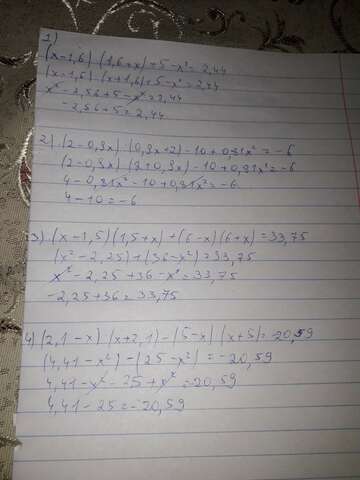 1)
(x-1,6) (1,6+x)+5-x²=2,44
(x-1,6)·(x+1,6)+5-x²=2,44
x²-2,56+5-x²=2,44
-2,56+5=2,44
2) (2-0,9x) (0,9x+2)-10+0,81x²=-6
(2-0,9x) (2+0,9x)-10+0,81x²=-6
4-0,81x²-10+0,81x²=-6
4-10=-6
3) (x-1,5)(1,5+x)+(6-x)(6+x)=33,75
(x²-2,25)+(36-x²)=33,75
x²-2,25+36-x²=33,75
-2,25+36=33,75
4) (2,1-x) (x+2,1)-(5-x) (x+5)=-20,59
(4,41-x²)-(25-x²)=-20,59
4,41-x²-25+x²=-20,59
4,41-25=-20,59